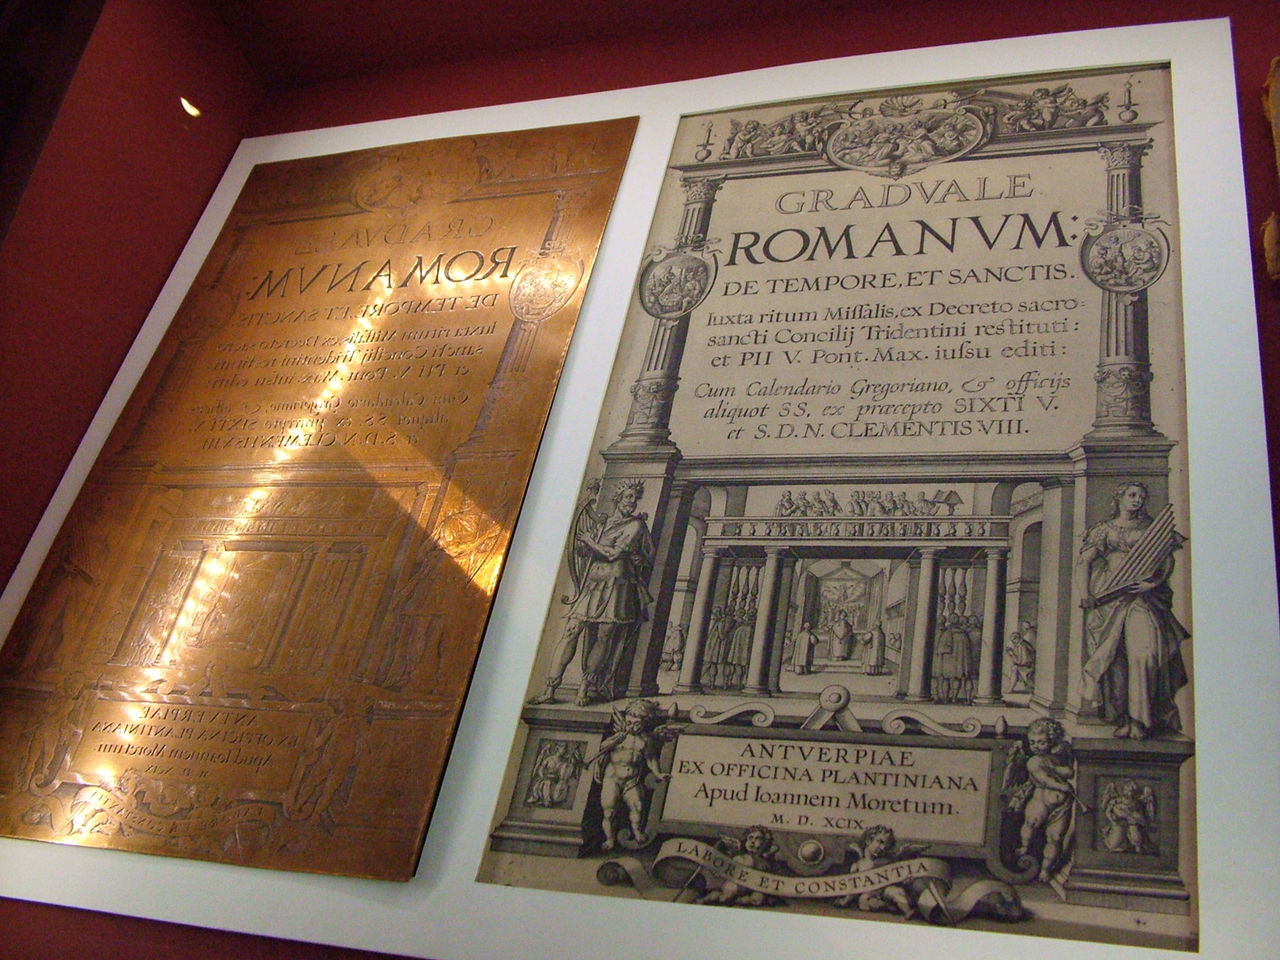 GRADVALE
ROMANVM:
DE TEMPORE, ET SANCTIS
Iuxta ritum Miſſalis, ex Decreto sacro:
sancti Concilij Tridentini restituti:
et PII V. Pont. Max. iuſsu editi:
Cum Calendario Gregoriano, & officijs
aliquot SS, ex præcepto SIXTI V.
et S.D.N. CLEMENTIS.VIII.
ANTVERPIAE
EX OFFICINA PLANTINIANA
Apud Ioannem Moretum.
M. D. XCIX.
LABORE ET CONSTANTIA
GRADVALE
ROMANVM:
DE TEMPORE, ET SANCTIS
Iuxta ritum Miſſalis, ex Decreto sacro
sancti Concilij Tridentini
et PII V. Pont. Max. iuſsu editi
Cum Calendario Gregoriano, & officijs
aliquot SS. ex præcepto SIXTI V.
et S.D.N. CLEMENTIS.VIII.
ANTVERPIAE
EX OFFICINA PLANTINIANA
Apud Ioannem Moretum.
M. D. XCIX